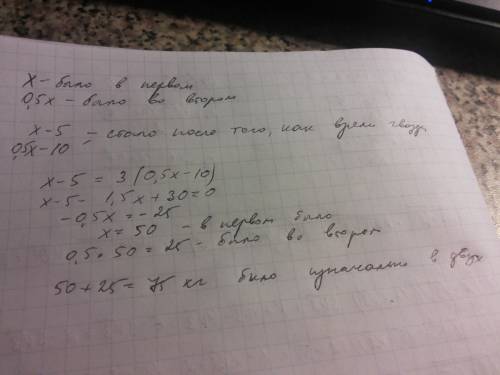 x - было в первом
0,5x - было во втором
x-5 - стало после того, как взяли гвозди
0,5x-10
x-5 = 3(0,5x-10)
x-5- 1,5x+30=0
-0,5x=-25
x=50 - в первом было
0,5*50=25- было во втором
50+25=75 кг было изначально в двух